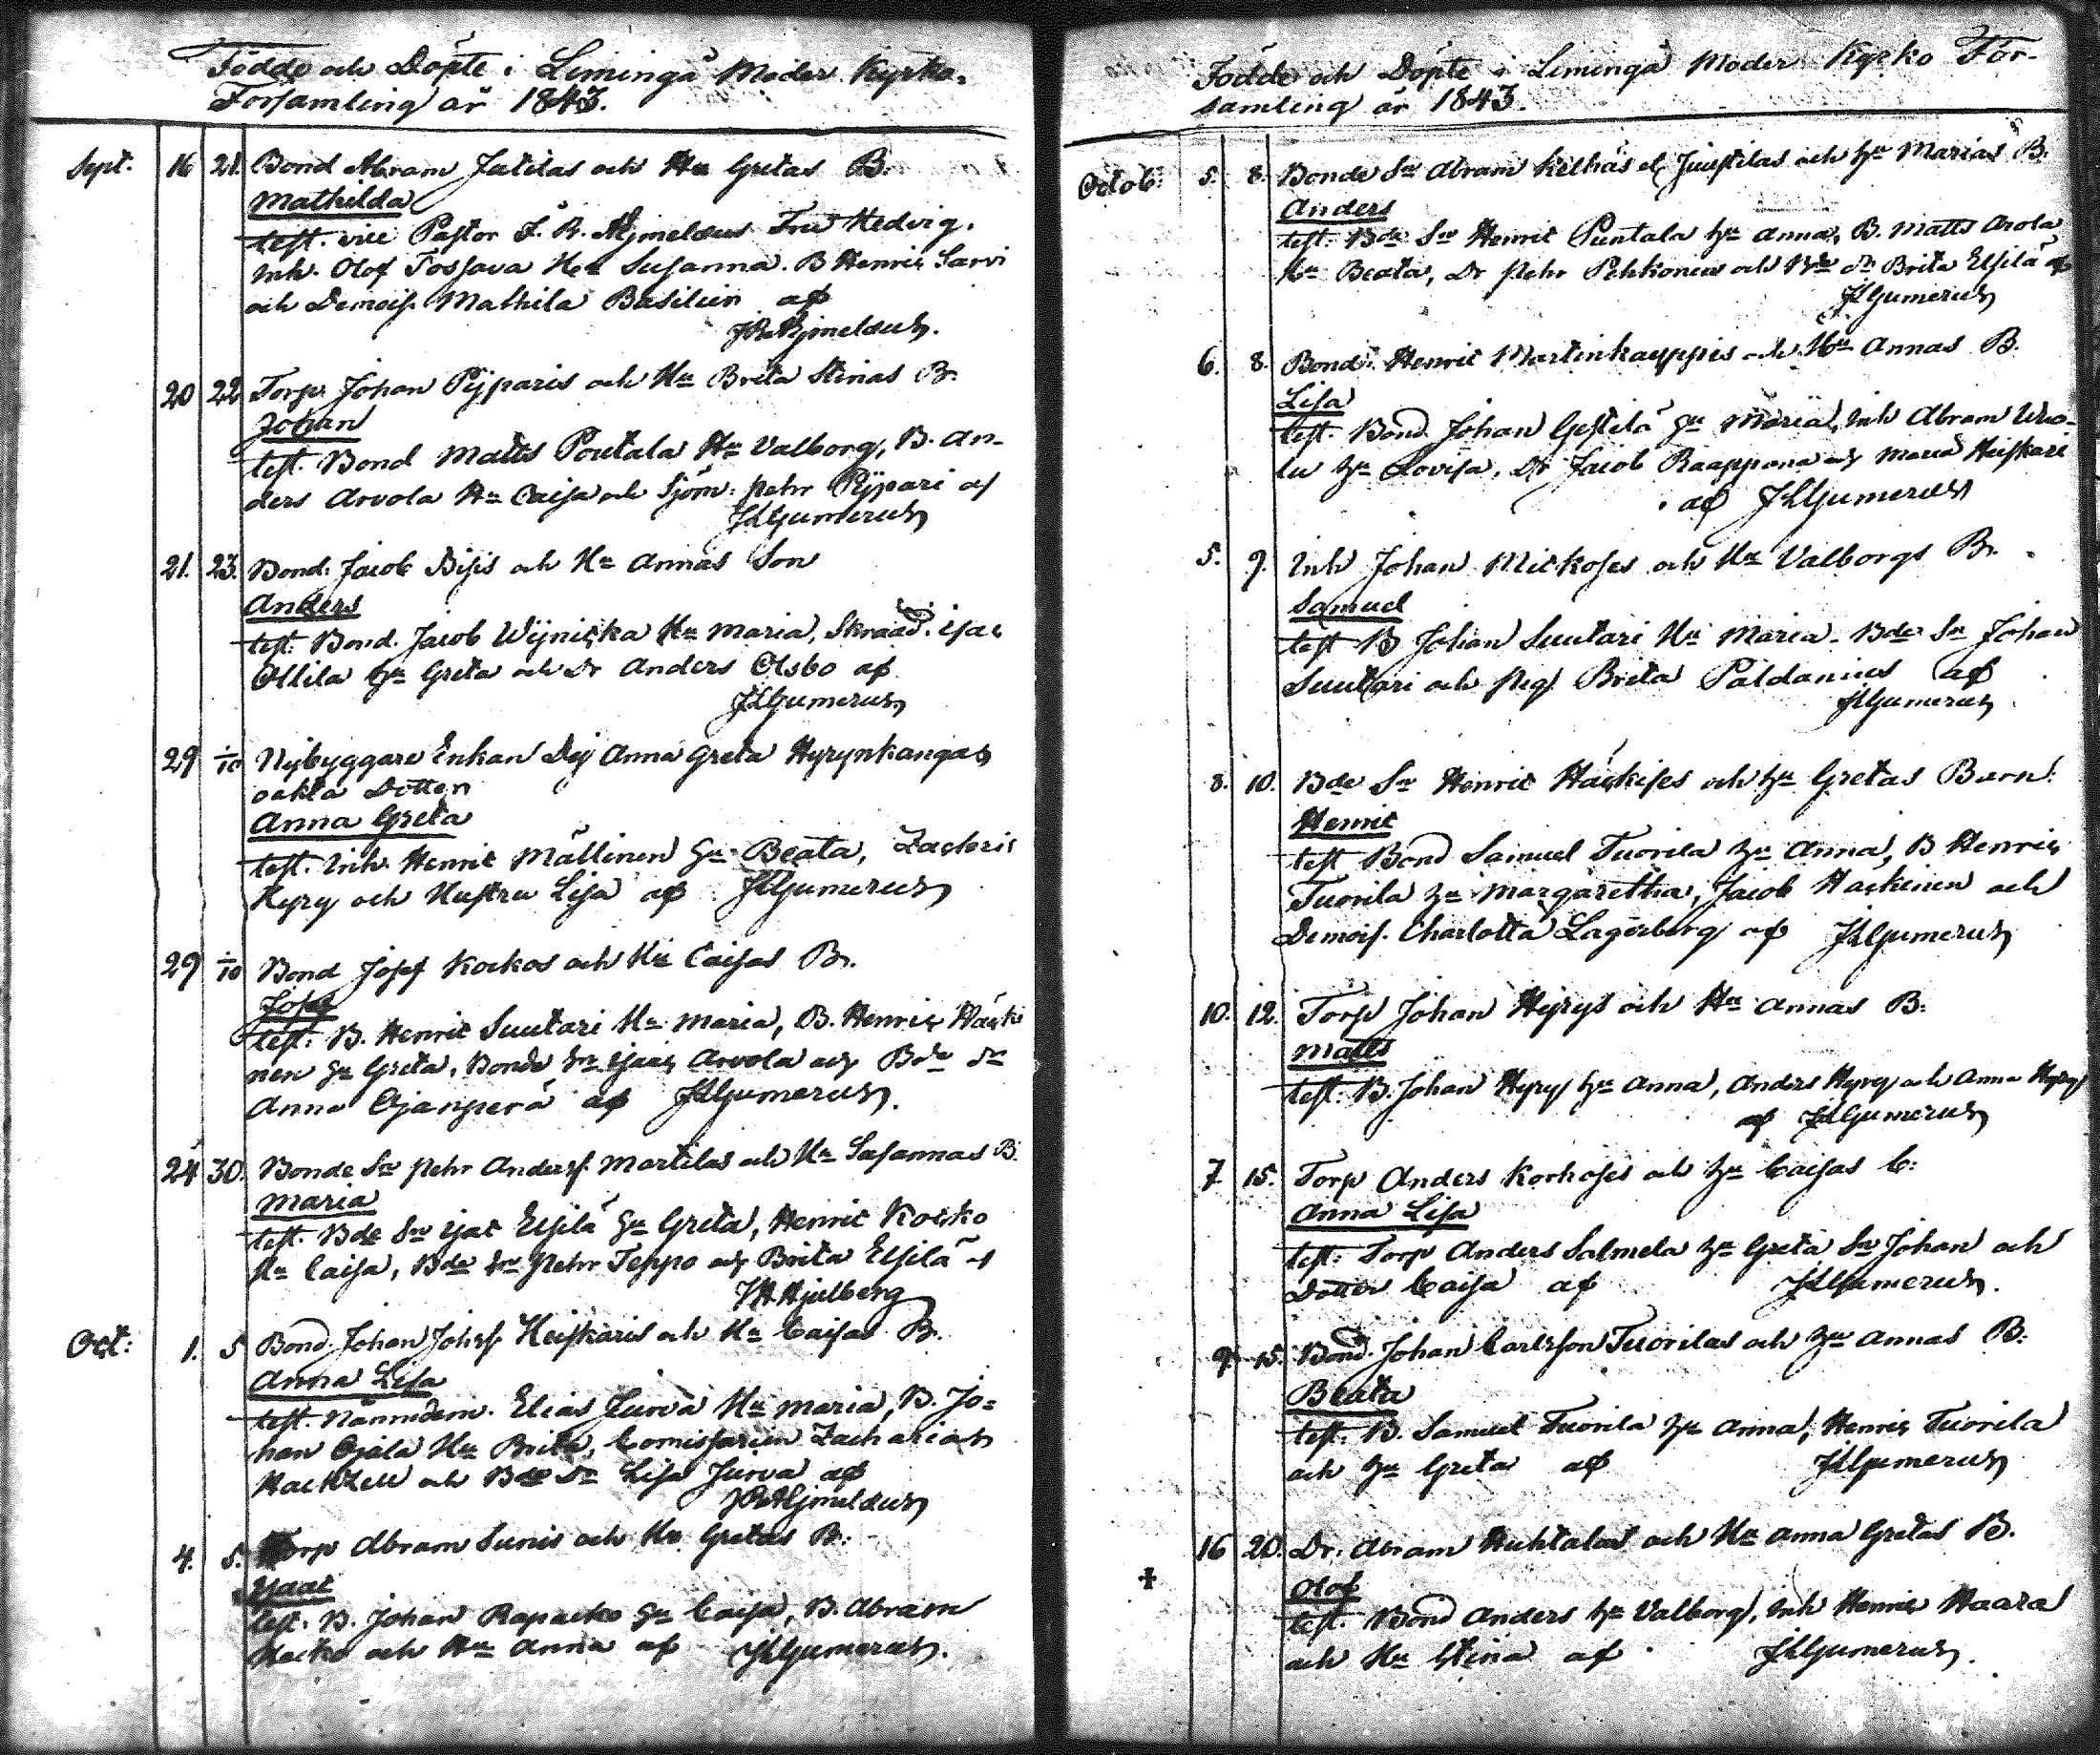 Födde och Döpte i Limingå Moder Kyrko-
Församling år 1843.
Sept. 16 21. Bond Abram Jutilas och Hu Gretas B.
Mathilda
test. vice Pastor J. R. Hjmelæus Fru Hedvig.
Inh. Olof Tossava Hu Susanna. B Henric Sarvi
och Demois. Mathila Basilien af
JRHjmelæus.
20 22 Torp. Johan Pÿÿparis och Hu Brita Stinas B.
Johan
test. Bond Matts Poutala Hu Valborg, B. An-
ders Arvola Hu Caisa och Sjöm. Pehr Pÿÿpari af
JLGumerus
21. 23. Bond. Jacob Bisis och Hu Annas Son
Anders
test. Bond. Jacob Wÿnicka Hu Maria, Skraäd. Isac
Ollila hu Greta och Dr Anders Olsbo af
JLGumerus
29 1/10 Nybyggare Enkan Dej Anna Greta Hyrynkangas
oakta Dotter
Anna Greta
test. Inh. Henric Mällinen hu Beata, Zachris
Hyry och Hustru Lisa af JLGumerus
29 1/10 Bond Josef Kockos och Hu Caisas B.
Josef
test: B. Henric Suutari Hu Maria, B. Henric Häcki
nen hu Greta, Bonde Sn Isac Arvola och Bde Dr
Anna Ojanperä af JLGumerus.
24 30. Bonde Sn Pehr Anderss. Martilas och Hu Susannas B.
Maria
test. Bde Sn Isac Elsilä hu Greta, Henric Kocko
hu Caisa, Bde Sn Pehr Teppo och Brita Elsilä af
JH Hjulberg
Oct: 1. 5 Bond. Johan Johss. Heiskaris och Hu Caisas B.
Anna Lisa
test. Nämndem. Elias Jurva Hu Maria, B. Jo-
han Ojala Hu Brita, Comissarien Zacharias
Hackzell och Bde Dr Lisa Jurva af
JRHjmelæus
4. 5. Torp Abram Sunis och Hu Gretas B:
Isaac
test. B. Johan Rapacko hu Caisa, B. Abram
Kocko och Hu Anna af JLGumerus.
Födde och Döpte i Limingå Moder Kyrko För-
samling år 1843.
Octob: 5. 8. Bonde Sn Abram Kelhäs el. Juustilas och hu Marias B.
Anders
test: Bde Sn Henric Puntala hu Anna, B. Matts Arola
hu Beata, Dr Pehr Pehkonen och Bde Dr Brita Elsilä af
JLGumerus
6. 8. Bond. Henric Martinkauppis och Hu Annas B.
Lisa
test. Bond Johan Gestilä hu Maria, Inh Abram Uuo-
lu hu Lovisa, Dr Jacob Raappana och Maria Heiskari
af JLGumerus
5. 9. Inh Johan Mickoses och Hu Valborgs B.
Samuel
test B Johan Suutari Hu Maria. Bde Sn Johan
Suutari och Pig. Brita Paldanius af
JLGumerus
8. 10. Bde Sn Henric Häckises och hu Gretas Barn:
Henric
test Bond Samuel Tuorila hu Anna, B Henric
Tuorila hu Margaretha, Jacob Häckinen och
Demois. Charlotta Lagerborg af JLGumerus
10. 12. Torp Johan Hyrys och Hu Annas B:
Matts
test: B. Johan Hyry hu Anna, Anders Hyry och Anna Hyry
af JLGumerus
7 15. Torp Anders Korhoses och hu Caisas b:
Anna Lisa
test: Torp Anders Salmela hu Greta Sn Johan och
Dotter Caisa af JLGumerus.
9. 15. Bond. Johan Carlsson Tuorilas och hu Annas B:
Beata
test: B. Samuel Tuorila hu Anna, Henric Tuorila
och hu Greta af JLGumerus
16 20. Dr. Abram Huhtalas och Hu Anna Gretas B.
Olof
test. Bond Anders hu Valborg, Inh Henric Haara
och Hu Stina af JLGumerus.